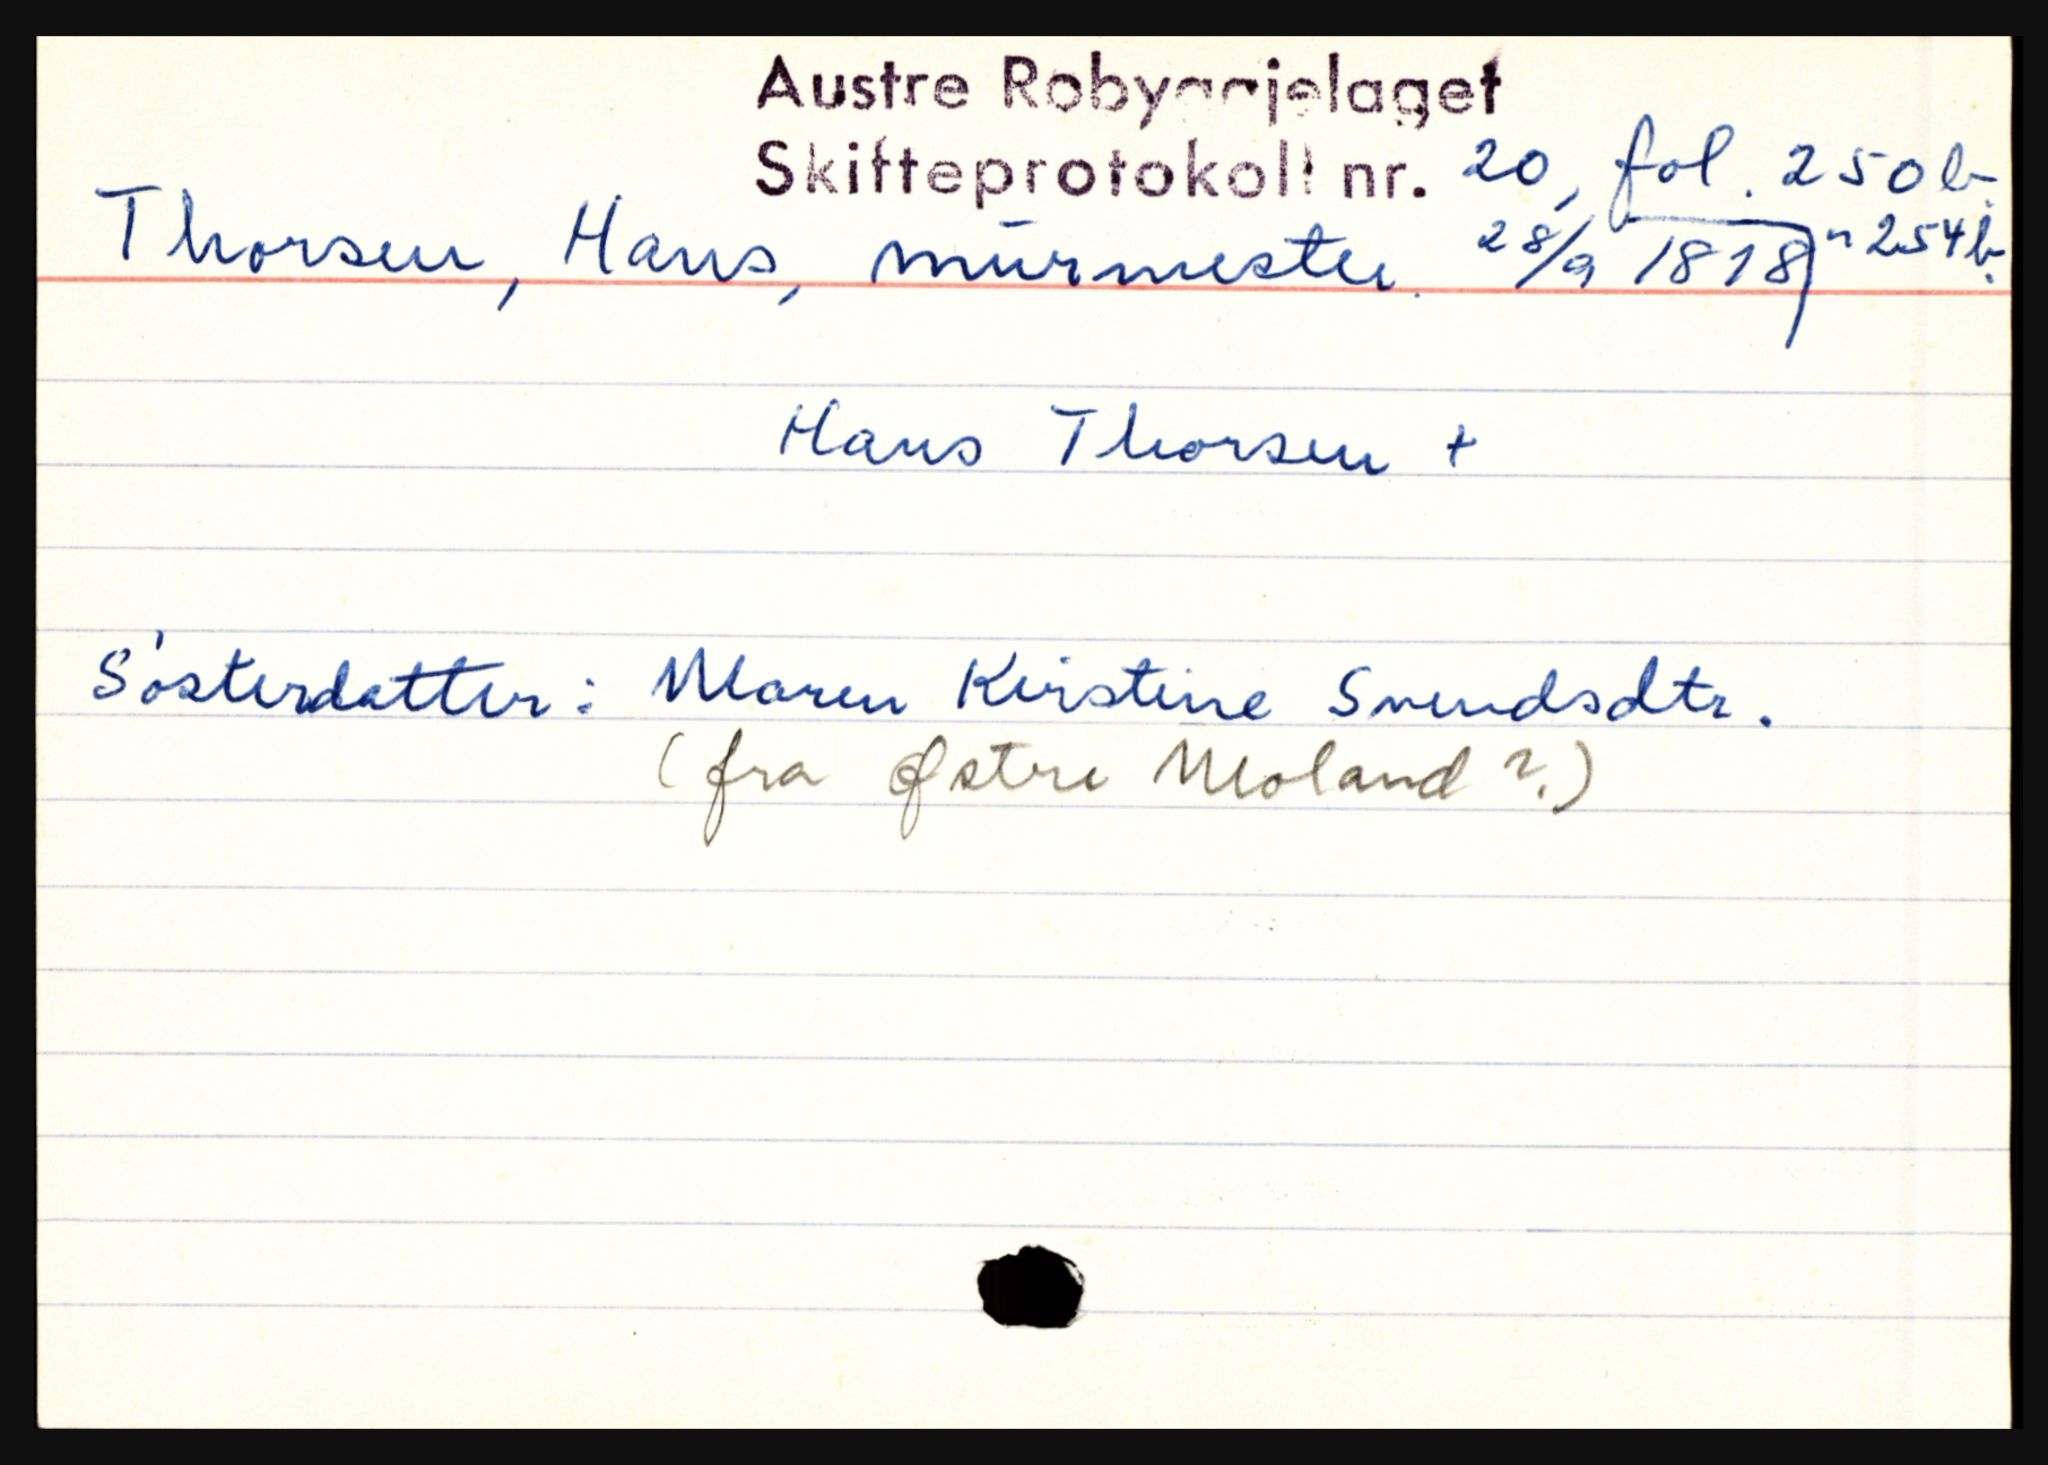 Austre Robyggjelaget
Skifteprotokoll nr. 20, fol. 250b.
Thorsen, Hans, mūrmester. 28/9 1818, " 254b.
Hans Thorsen +
Søsterdatter: Maren Kirstine Svendsdtr.
(fra Østre Moland?)